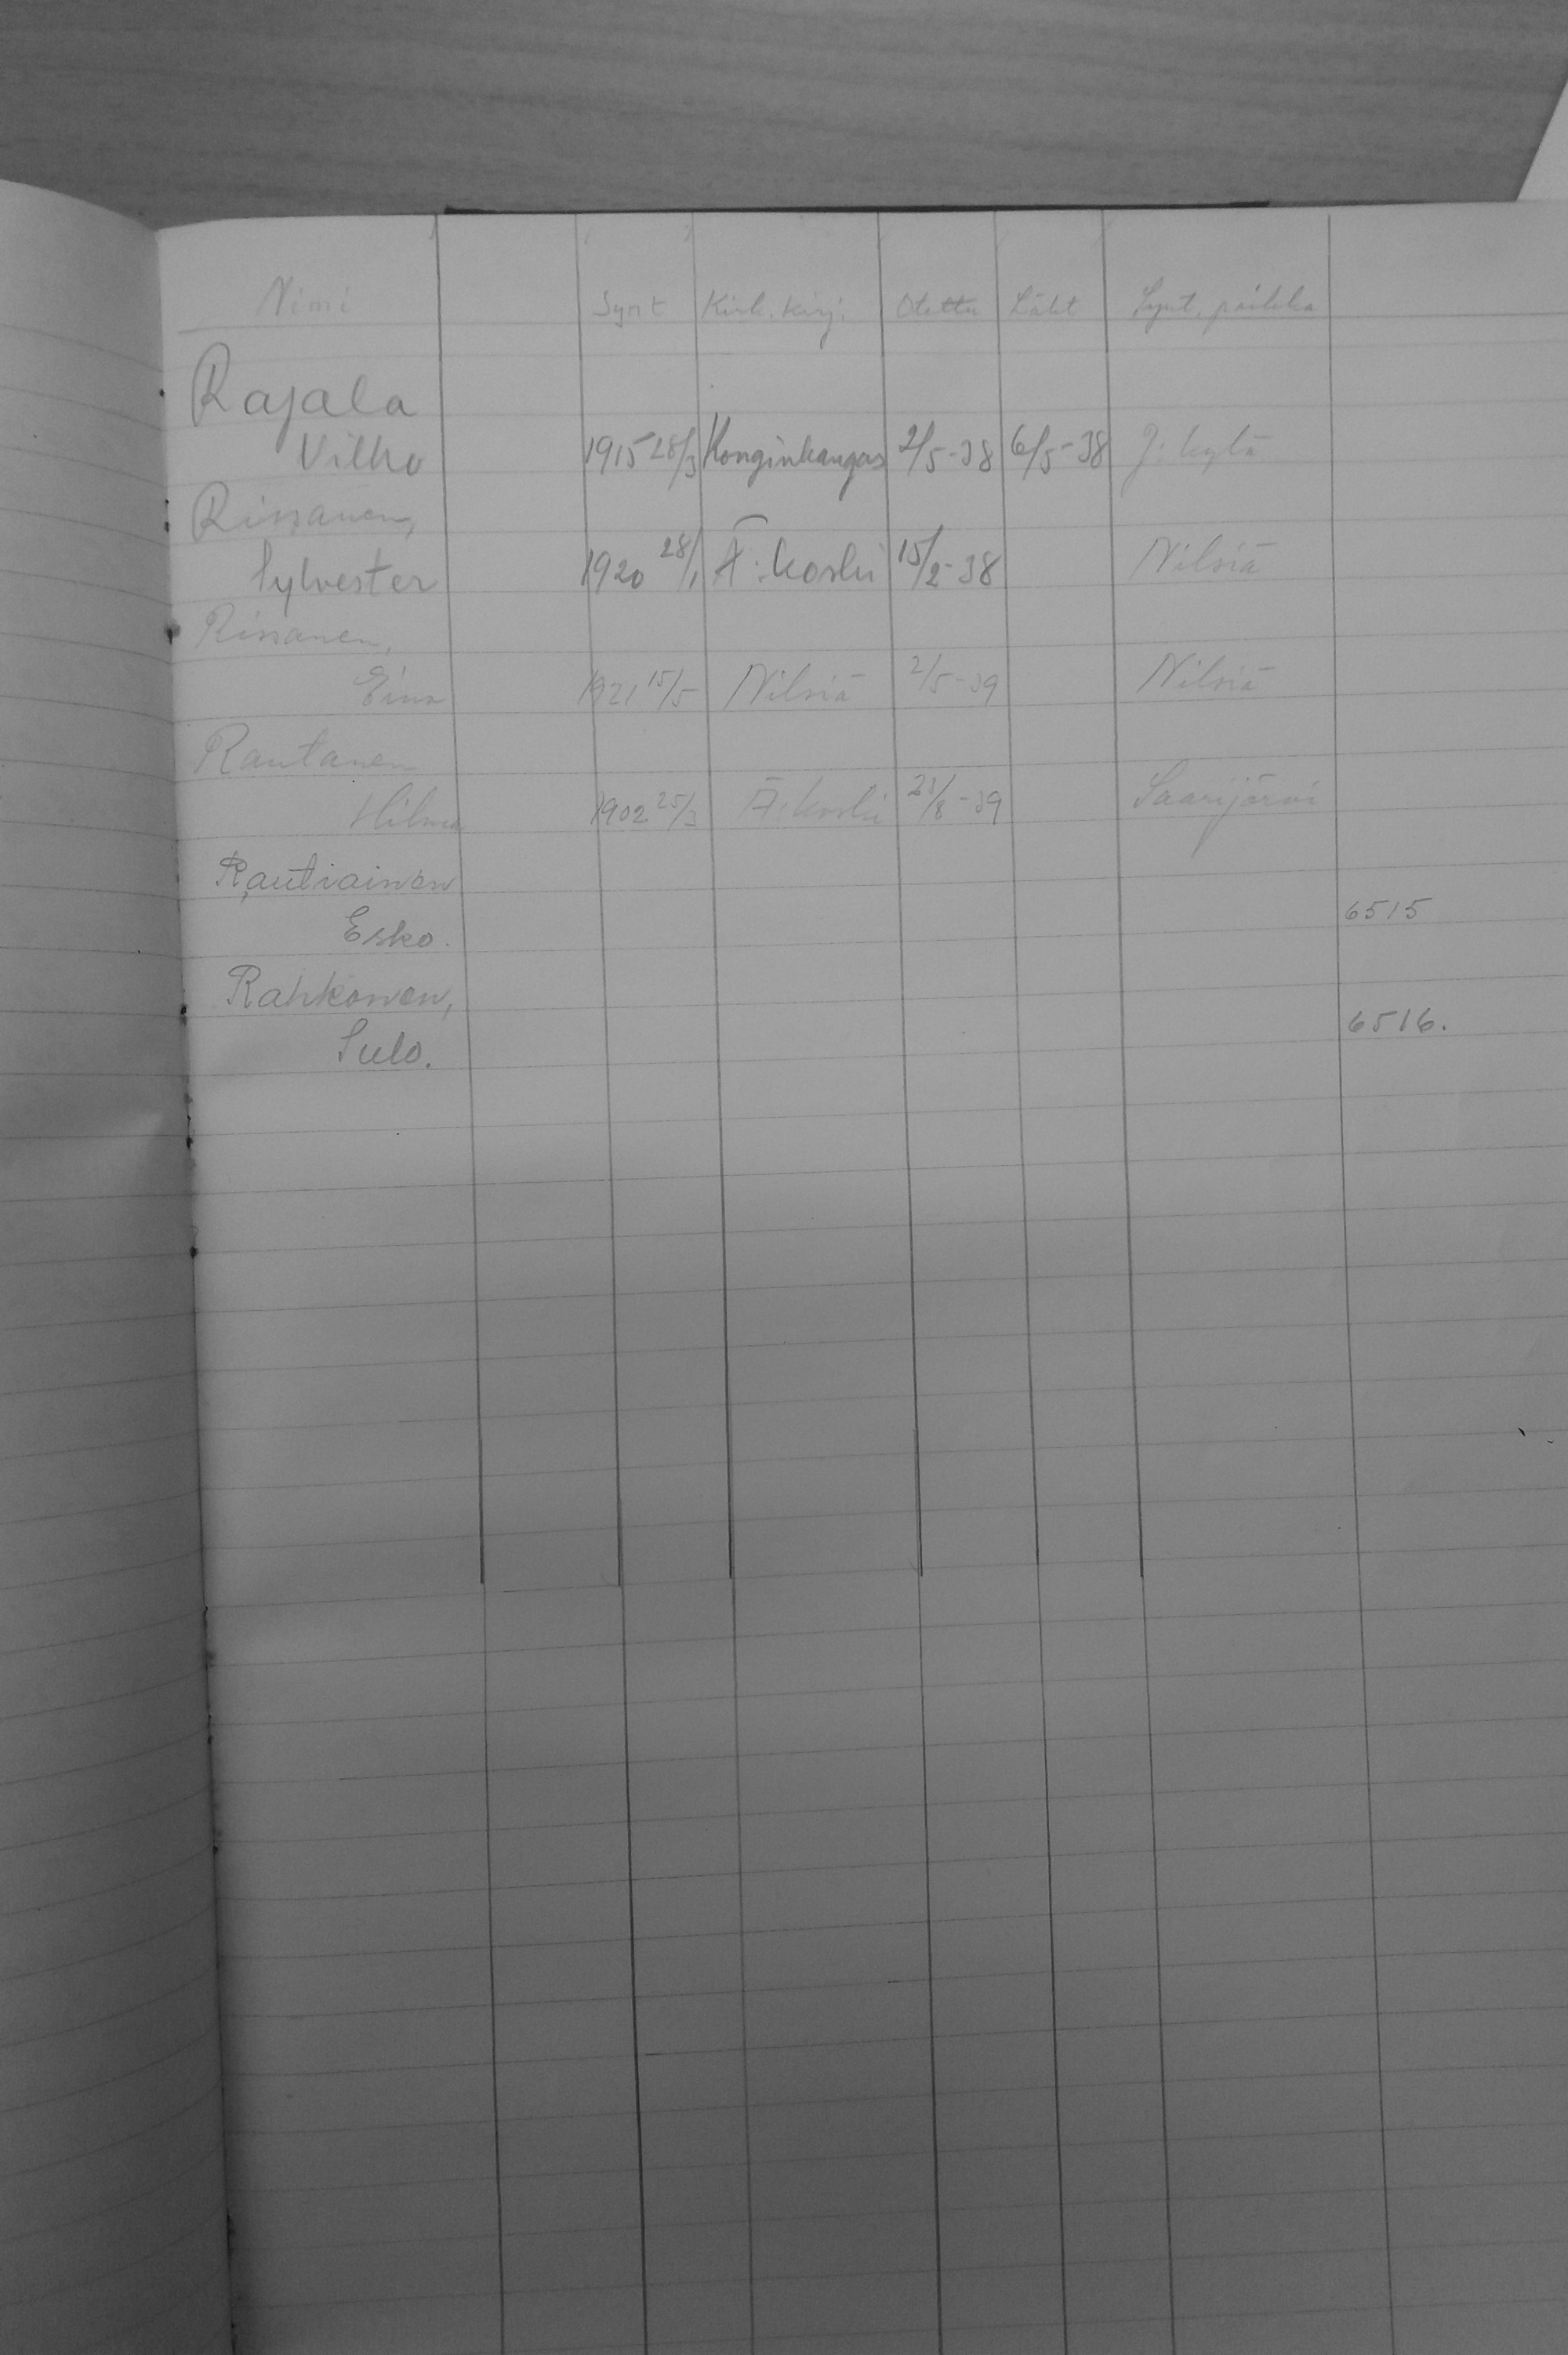 Nimi Synt Kirk. kirj. Otettu Läht Synt. paikka
Rajala
Vilho 1915 28/3 Konginkangas 2/5-38 6/5-38 J:kylä
Rissanen,
Sylvester 1920 28/1 Ä:koski 15/2-38 Nilsiä
Rissanen,
Eino 1921 15/5 Nilsiä 2/5-39 Nilsiä
Rautanen
Hilma 1902 25/3 Ä:koski 23/8-39 Saarijärvi
Rautiainen
Esko. 6515
Rahkonen,
Sulo. 6516.